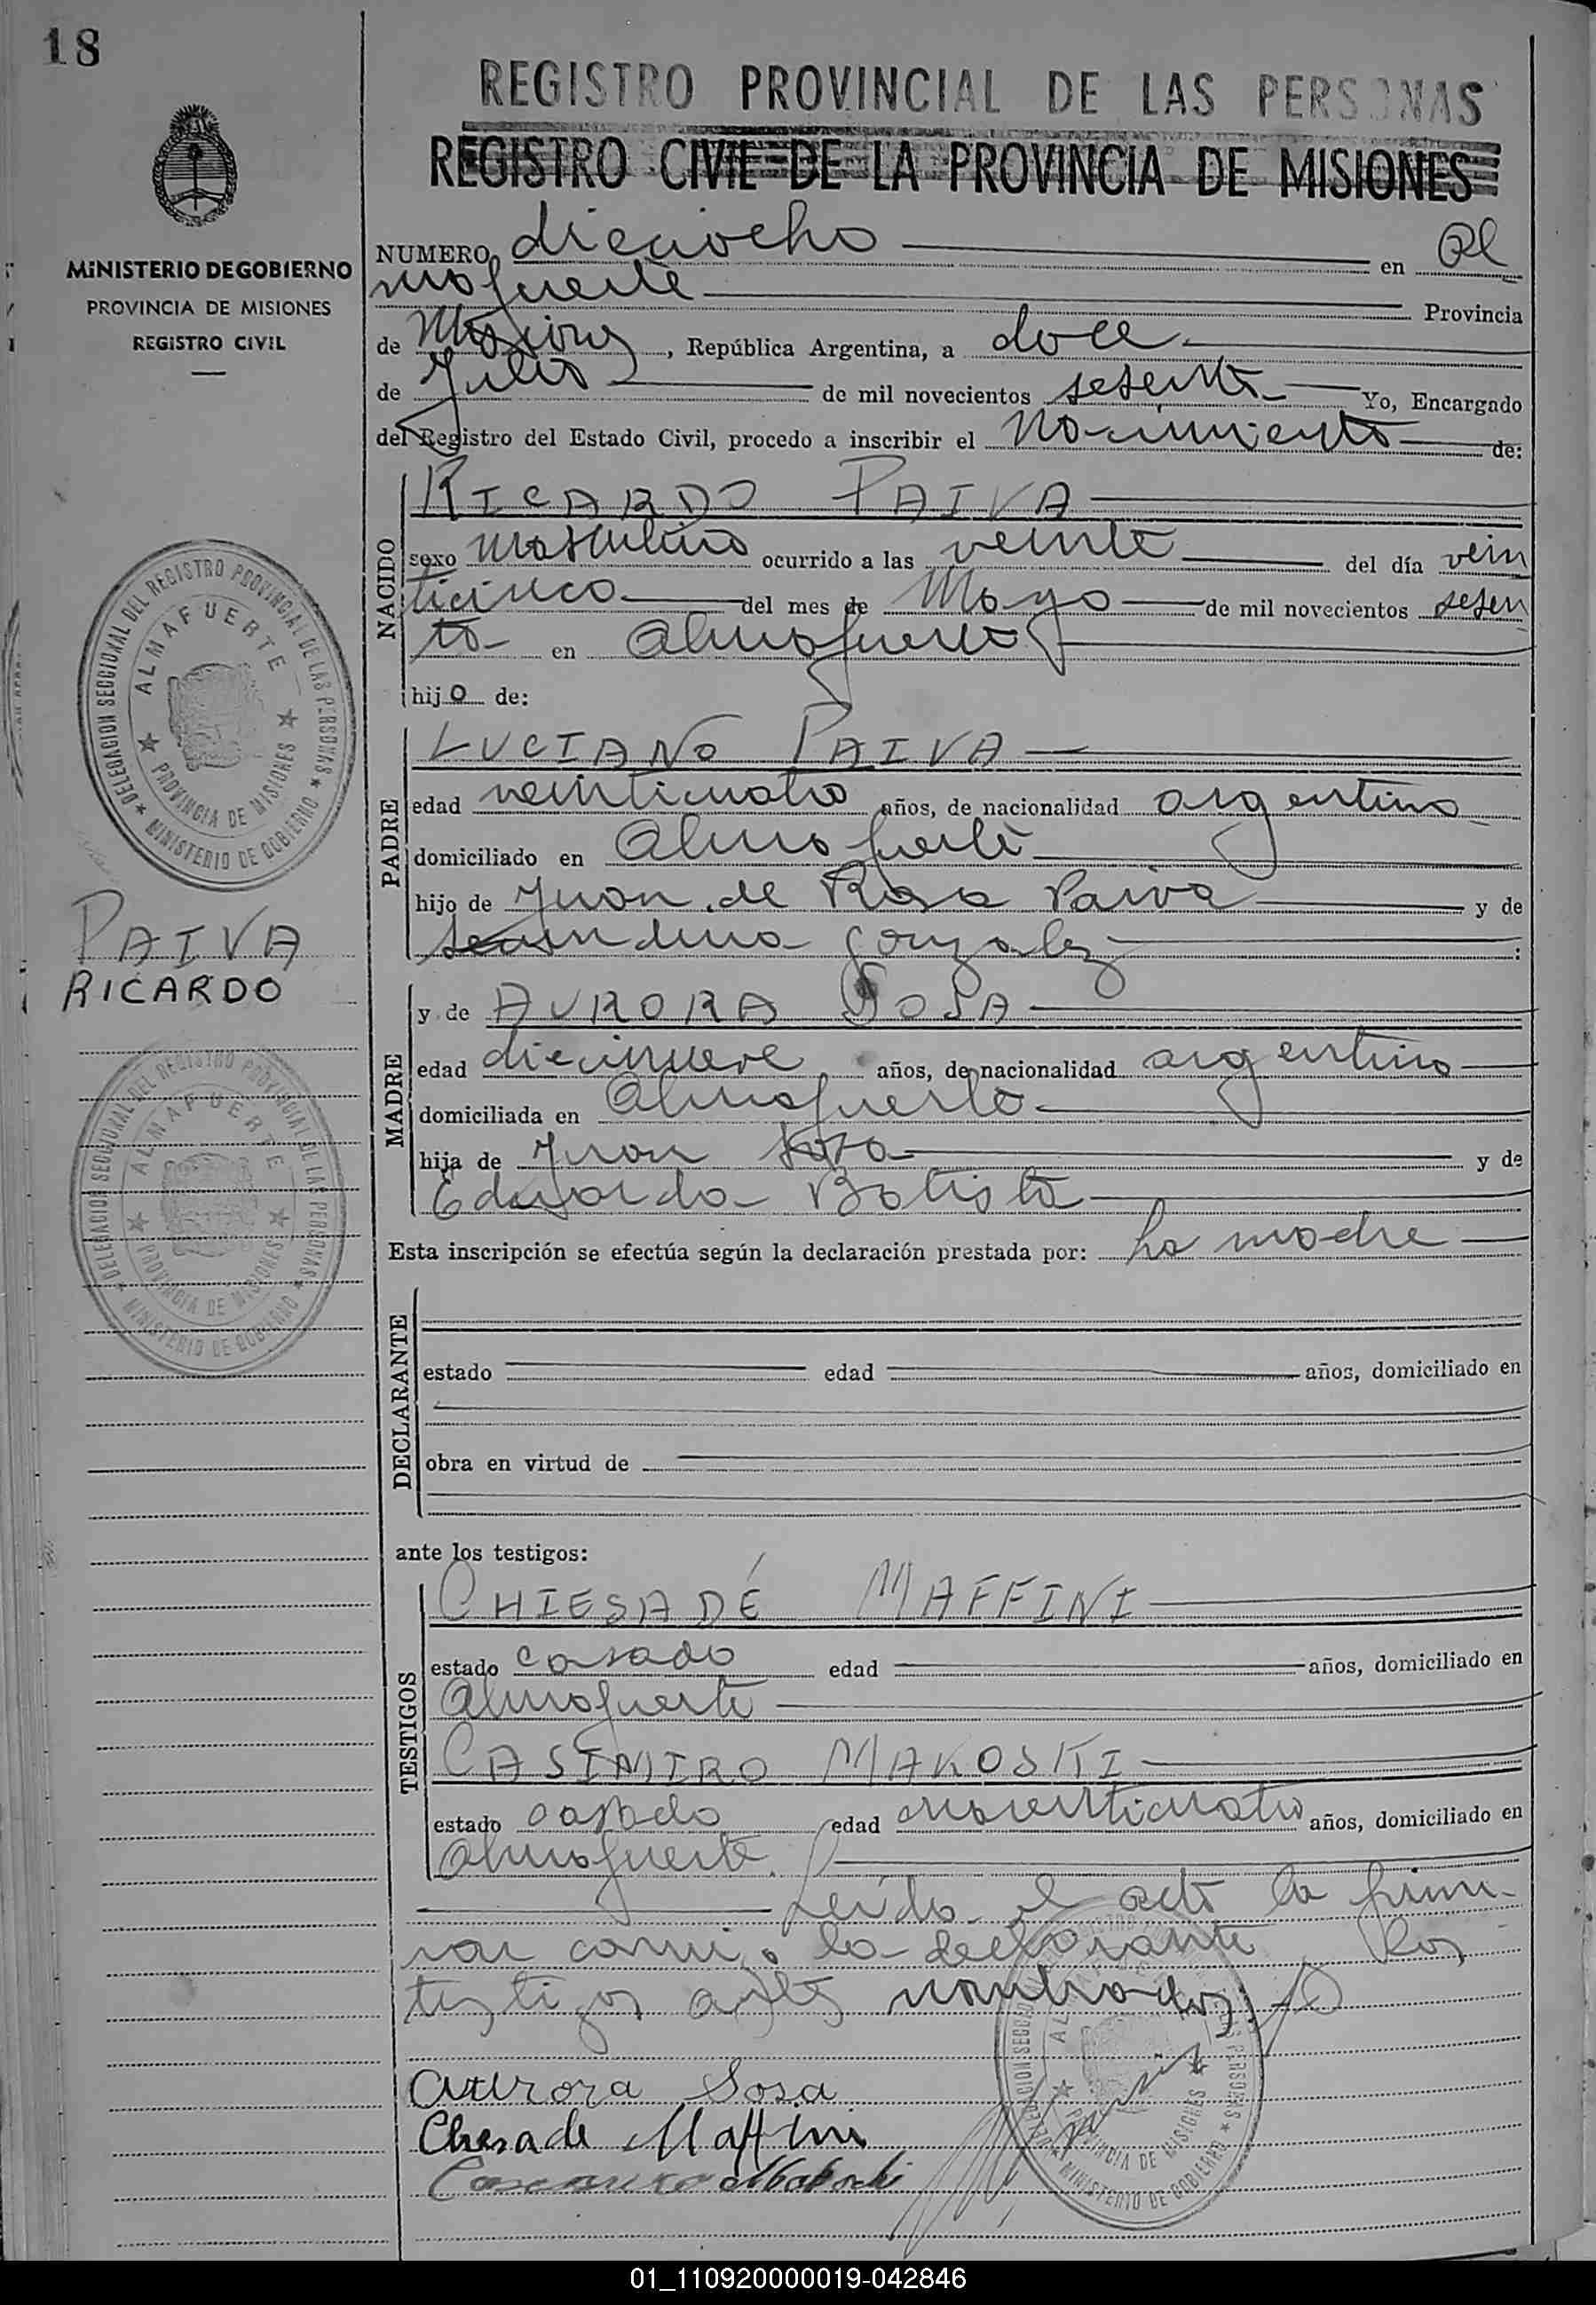 18
REGISTRO PROVINCIAL DE LAS PERSONAS
REGISTRO CIVIL DE LA PROVINCIA DE MISIONES
MINISTERIO DE GOBIERNO
PROVINCIA DE MISIONES
REGISTRO CIVIL
NUMERO dieciocho en Al
mafuerte Provincia
de Misiones, República Argentina, a doce
de Julio de mil novecientos sesenta Yo, Encargado
del Registro del Estado Civil, procedo a inscribir el nacimiento de:
NACIDO
RICARDO PAIVA
sexo masculino ocurrido a las veinte del día vein
ticinco del mes de Mayo de mil novecientos sesen
ta en Almafuerte
hijo de:
PADRE
LUCIANO PAIVA
edad veinticuatro años, de nacionalidad argentina
domiciliado en Almafuerte
hijo de Juan de Rosa Paiva y de
Secundina Gonzalez
PAIVA
RICARDO
MADRE
y de AURORA SOSA
edad diecinueve años, de nacionalidad argentina
domiciliada en Almafuerte
hija de Juan Sosa y de
Eduarda Batista
Esta inscripción se efectúa según la declaración prestada por: La madre
DECLARANTE
estado edad años, domiciliado en
obra en virtud de
ante los testigos:
TESTIGOS
CHIESADÉ MAFFINI
estado casado edad años, domiciliado en
Almafuerte
CASIMIRO MAKOSKI
estado casado edad años, domiciliado en
Almafuerte.
Leída el acta la firma-
ron conmigo la declarante y los
testigos antes nombrados
Aurora Sosa
Chesade Maffini
DELEGACION SECCIONAL DEL REGISTRO PROVINCIAL DE LAS PERSONAS
ALMAFUERTE
PROVINCIA DE MISIONES
MINISTERIO DE GOBIERNO
DELEGACION SECCIONAL DEL REGISTRO PROVINCIAL DE LAS PERSONAS
ALMAFUERTE
PROVINCIA DE MISIONES
MINISTERIO DE GOBIERNO
PROVINCIA DE MISIONES
MINISTERIO DE GOBIERNO
01_110920000019-042846